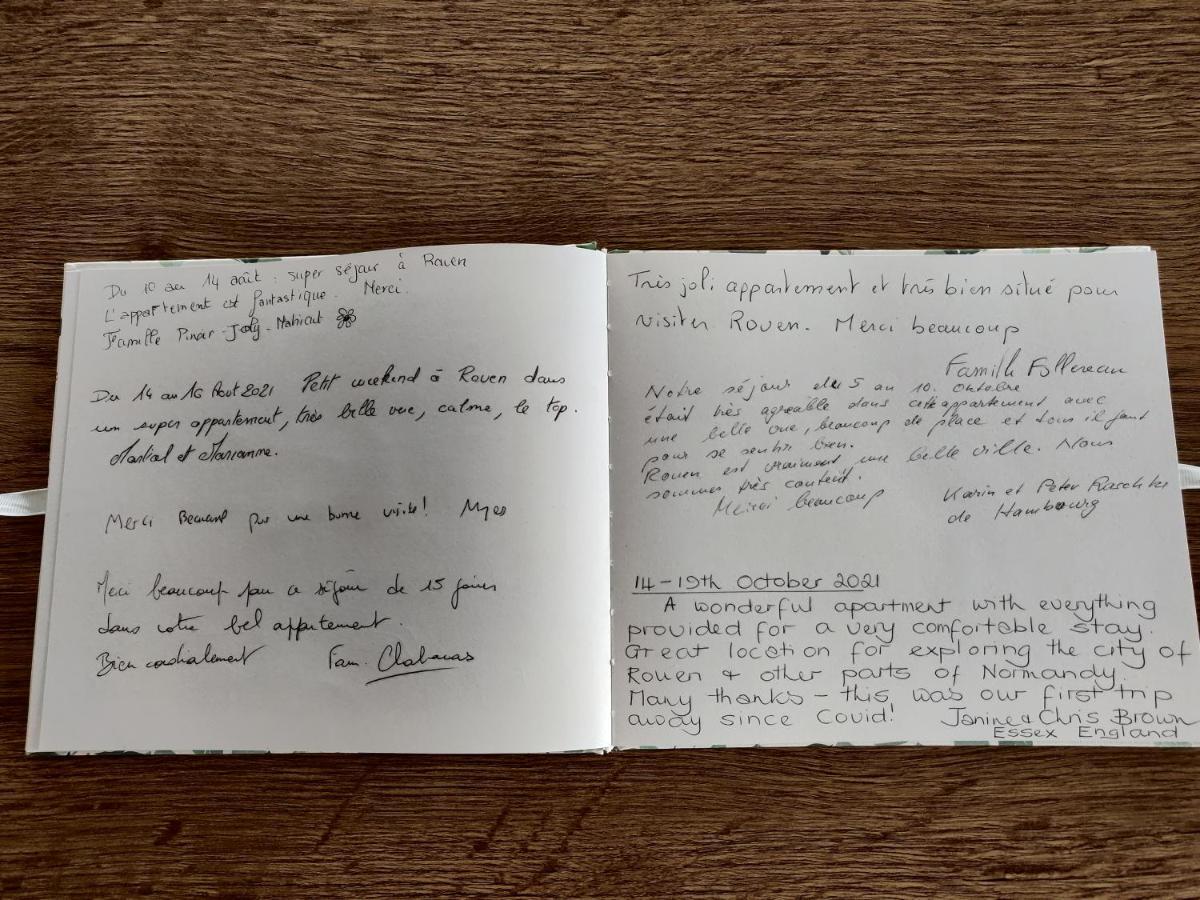 Du 10 au 14 août : super séjour à Rouen
L'appartement est fantastique. Merci.
Famille Pinar-Joly-
Du 14 au 16 Aout 2021 Petit weekend à Rouen dans
un super appartement, très belle vue, calme, le top.
Martial et Marianne.
Merci Beaucoup pour une bonne visite!
Merci beaucoup pour ce séjour de 15 jours
dans votre bel appartement.
Bien cordialement Fam.
Très joli appartement et très bien situé pour
visiter Rouen. Merci beaucoup
Famille Follereau
Notre séjour du 5 au 10. Octobre
était très agréable dans cette appartement avec
une belle vue, beaucoup de place et tous il faut
pour se sentir bien.
Rouen est vraiment une belle ville. Nous
sommes très content.
Merci beaucoup Karin et Peter
de Hambourg
14-19th October 2021
A wonderful apartment with everything
provided for a very comfortable stay.
Great location for exploring the city of
Rouen & other parts of Normandy.
Many thanks - this was our first trip
away since Covid! Janine & Chris Brown
Essex England